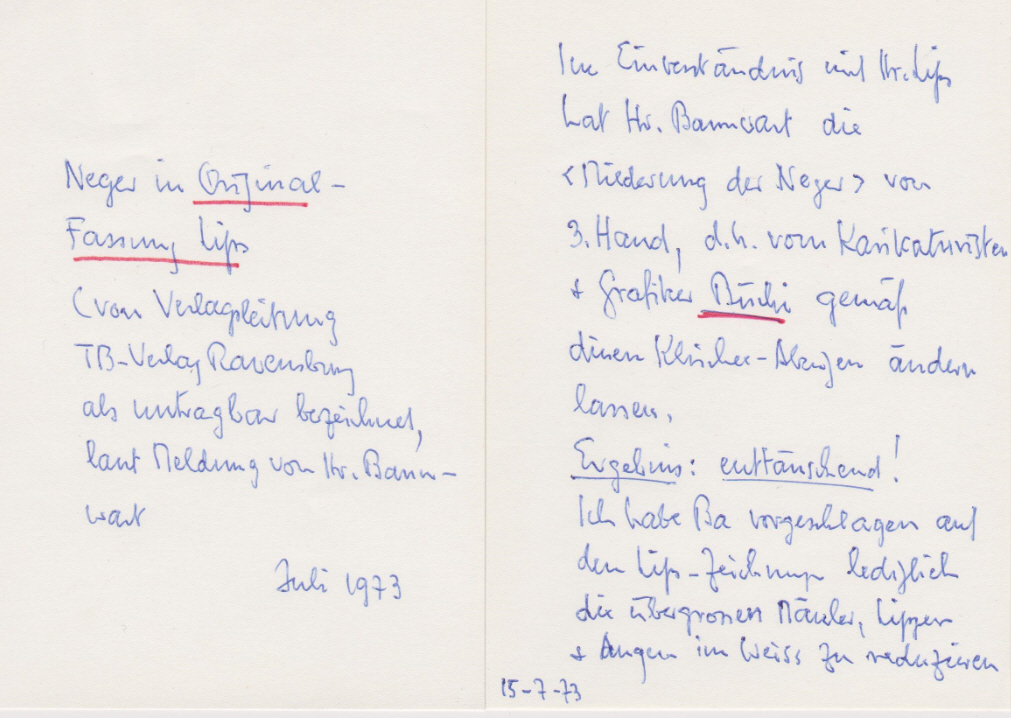 Neger in Original-
Fassung Lips
(von Verlagsleitung
TB-Verlag Ravensburg
als untragbar bezeichnet,
laut Meldung von Hr. Bann-
wart
Juli 1973
Im Einverständnis mit Hr. Lips
hat Hr. Bannwart die
<Milderung der Neger> von
3. Hand, d.h. vom Karikaturisten
+ Grafiker Büchi gemäß
diesen Klischee-Abzügen ändern
lassen.
Ergebnis: enttäuschend!
Ich habe Ba vorgeschlagen auf
den Lips-Zeichnungen lediglich
die übergrossen Mäuler, Lippen
+ Augen im Weiss zu reduzieren
15-7-73